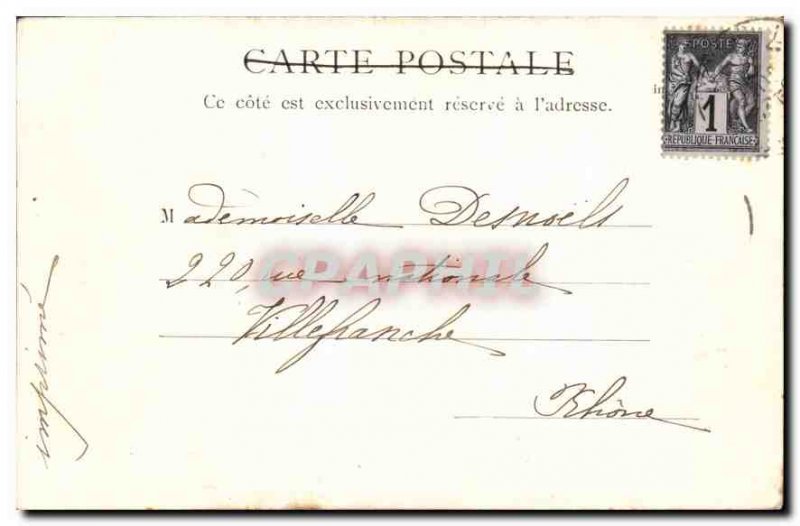 CARTE POSTALE
Ce côté est exclusivement réservé à l'adresse.
POSTE
1
RÉPUBLIQUE FRANÇAISE
Mademoiselle Desnoëls
220, rue nationale
Villefranche
Rhône
Imprimés
CPAPHIL